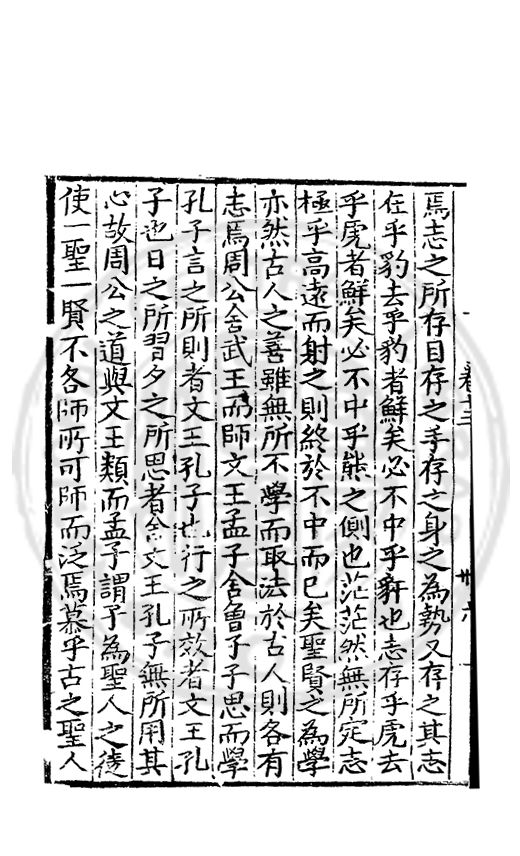 焉志之所存目存之手存之身之為勢又存之其志
在乎豹去乎豹者鮮矣必不中乎豻也志存乎虎去
乎虎者鮮矣必不中乎熊之側也茫茫然無所定志
極乎高遠而射之則終於不中而已矣聖賢之為學
亦然古人之善雖無所不學而取法於古人則各有
志焉周公舍武王而師文王孟子舍魯子子思而學
孔子言之所則者文王孔子也行之所效者文王孔
子也日之所習夕之所思者舍文王孔子無所用其
心故周公之道與文王類而孟子謂予為聖人之徒
使一聖一賢不各師所可師而泛焉慕乎古之聖人
卅六